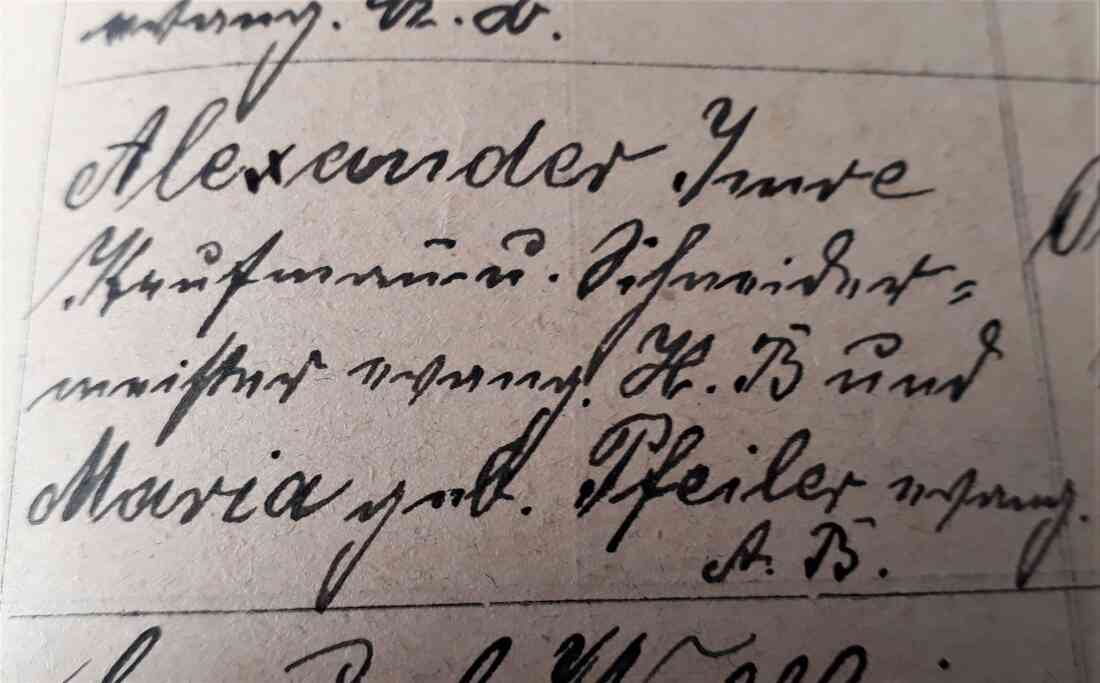 evang. A. B.
Alexander Imre
Kaufmann u. Schneider=
meister evang. H. B und
Maria geb. Pfeiler evang.
A. B.